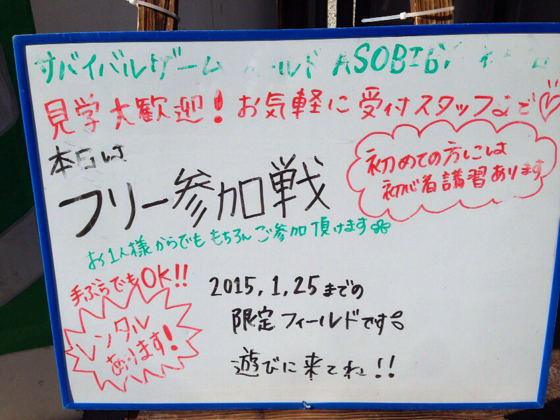 サバイバルゲーム フィールド ASOBIBA
見学大歓迎！お気軽に受付スタッフまで♡
本日は
フリー参加戦
初めての方には
初心者講習あります
お1人様からでももちろんご参加頂けます
手ぶらでもOK!!
レンタル
あります!
2015.1.25までの
限定フィールドです
遊びに来てね!!